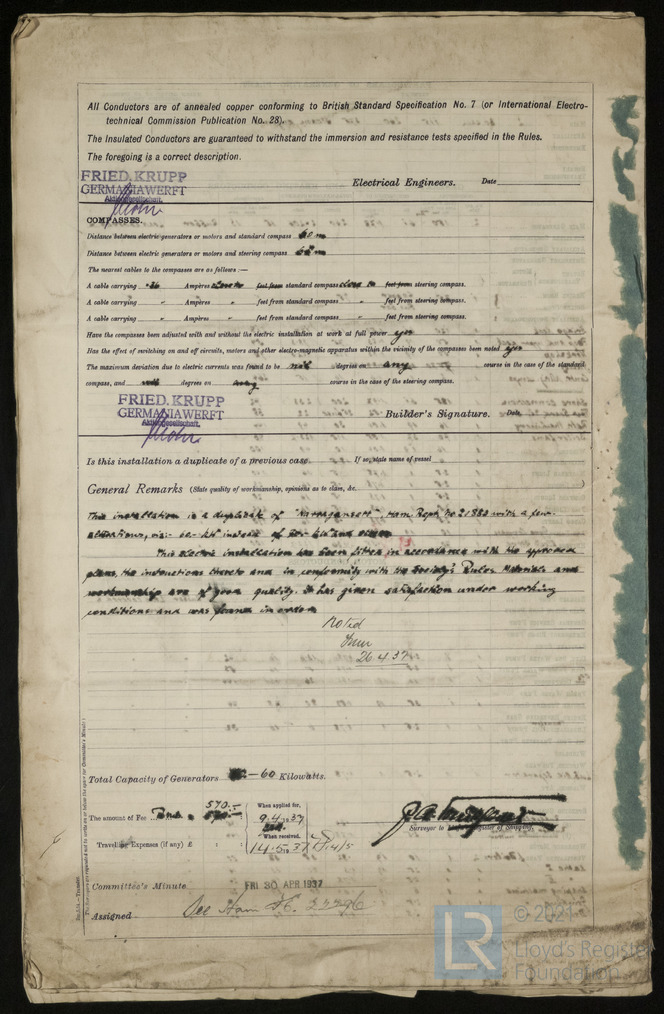 All Conductors are of annealed copper conforming to British Standard Specification No. 7 (or International Electro-
technical Commission Publication No. 28).
The Insulated Conductors are guaranteed to withstand the immersion and resistance tests specified in the Rules.
The foregoing is a correct description.
FRIED. KRUPP
GERMANIAWERFT
Aktiengesellschaft.
Electrical Engineers. Date
COMPASSES.
Distance between electric generators or motors and standard compass 60 m
Distance between electric generators or motors and steering compass m
The nearest cables to the compasses are as follows :—
A cable carrying Ampères feet from standard compass feet from steering compass.
A cable carrying " Ampères " feet from standard compass " feet from steering compass.
A cable carrying " Ampères " feet from standard compass " feet from steering compass.
Have the compasses been adjusted with and without the electric installation at work at full power yes
Has the effect of switching on and off circuits, motors and other electro-magnetic apparatus within the vicinity of the compasses been noted yes
The maximum deviation due to electric currents was found to be nil degrees on any course in the case of the standard
compass, and nil degrees on any course in the case of the steering compass.
FRIED. KRUPP
GERMANIAWERFT
Aktiengesellschaft.
Builder's Signature. Date
Is this installation a duplicate of a previous case If so, state name of vessel
General Remarks (State quality of workmanship, opinions as to class, &c.
This installation is a duplicate of "Narragansett", Ham Rept. No 21880 with a few
alterations, viz: 60-kW instead of kW and
This Electric installation has been fitted in accordance with the approved
plans, the instructions thereto and in conformity with the Society's Rules. Materials and
workmanship are of good quality. It has given satisfaction under working
conditions and was found in order.
Noted
26.4.37
Total Capacity of Generators —60 Kilowatts.
The amount of Fee 570.- When applied for, 9.4.1937
Travelling Expenses (if any) £ : : When received, 14.5.1937
Surveyor to Lloyd's Register of Shipping.
Committee's Minute FRI 30 APR 1937
Assigned See Ham J.E. 22296
© 2021
Lloyd's Register
Foundation
LR